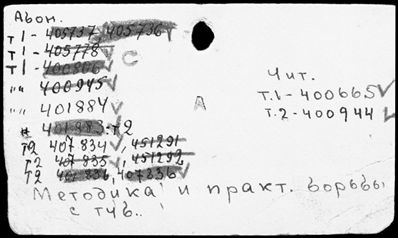 Абон.
т1 - 405737, 405736
т1 - 405778
т1 - 400866 С
"" 400945
"" 401884
401883 т2
т2 407834, 451291
т2 407835, 451292
т2 407836, 407336
А
Чит.
Т.1-400665
Т.2-400944
Методика и практ. борьбы
с туб..